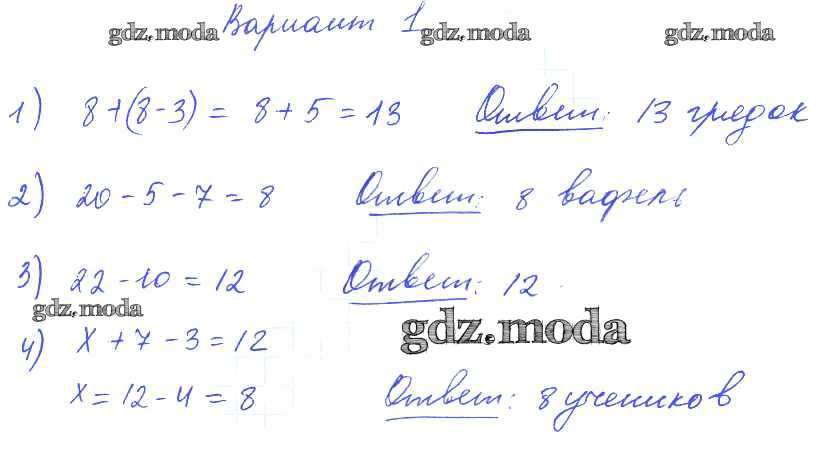 Вариант 1
gdz.moda gdz.moda gdz.moda
1) 8+(8-3) = 8+5=13 Ответ: 13 грядок
2) 20-5-7=8 Ответ: 8 вафель
3) 22-10=12 Ответ: 12
gdz.moda
gdz.moda
4) x+7-3=12
x=12-4=8 Ответ: 8 учеников